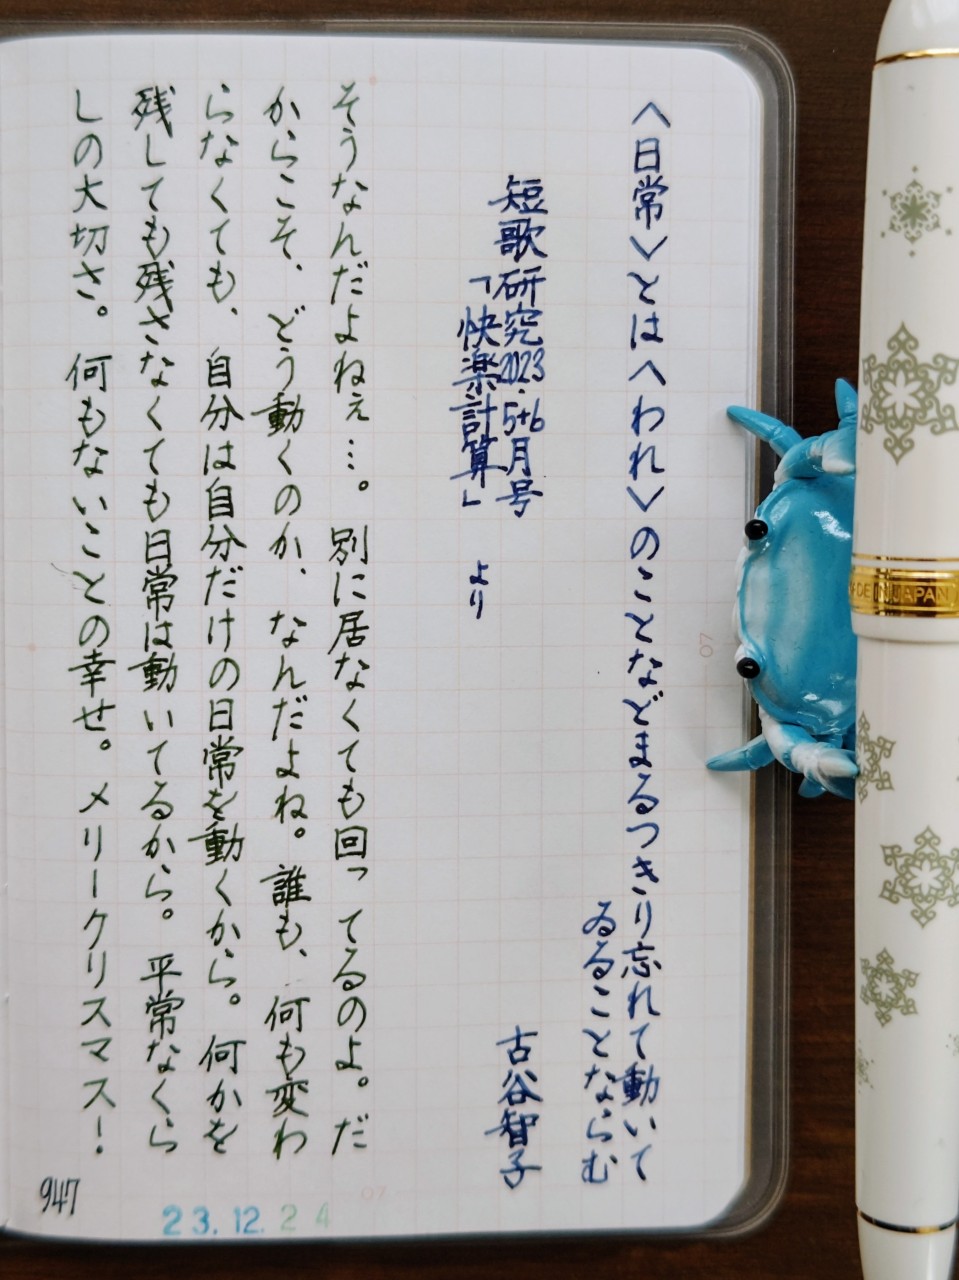 〈日常〉とは〈われ〉のことなどまるつきり忘れて動いて
ゐることならむ
古谷智子
短歌研究2023.5+6月号
「快楽計算」より
そうなんだよねぇ…。別に居なくても回ってるのよ。だ
からこそ、どう動くのか、なんだよね。誰も、何も変わ
らなくても、自分は自分だけの日常を動くから。何かを
残しても残さなくても日常は動いてるから。平常なくら
しの大切さ。何もないことの幸せ。メリークリスマス!
947
23.12.24
07
07
MADE IN JAPAN